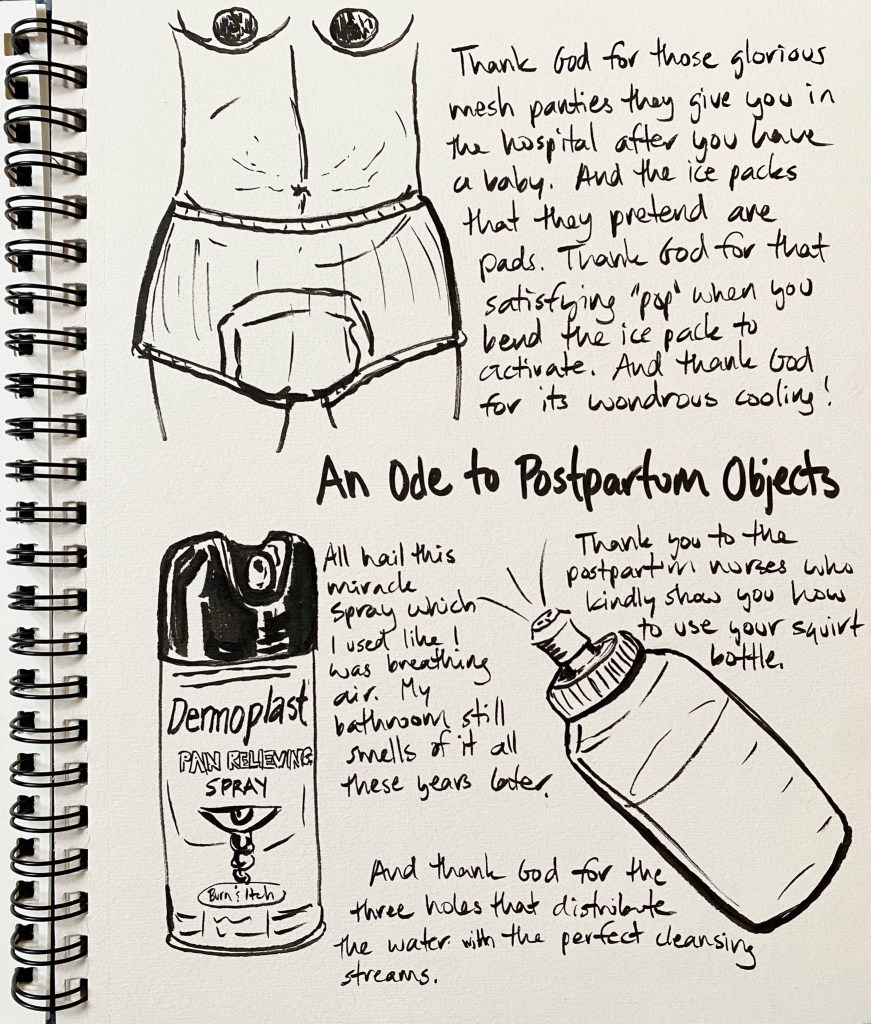 Thank God for those glorious
mesh panties they give you in
the hospital after you have
a baby. And the ice packs
that they pretend are
pads. Thank God for that
satisfying "pop" when you
bend the ice pack to
activate. And thank God
for its wondrous cooling!
An Ode to Postpartum Objects
All hail this
miracle
spray which
I used like I
was breathing
air. My
bathroom still
smells of it all
these years later.
Dermoplast
PAIN RELIEVING
SPRAY
Burn & Itch
Thank you to the
postpartum nurses who
kindly show you how
to use your squirt
bottle.
And thank God for the
three holes that distribute
the water with the perfect cleansing
streams.